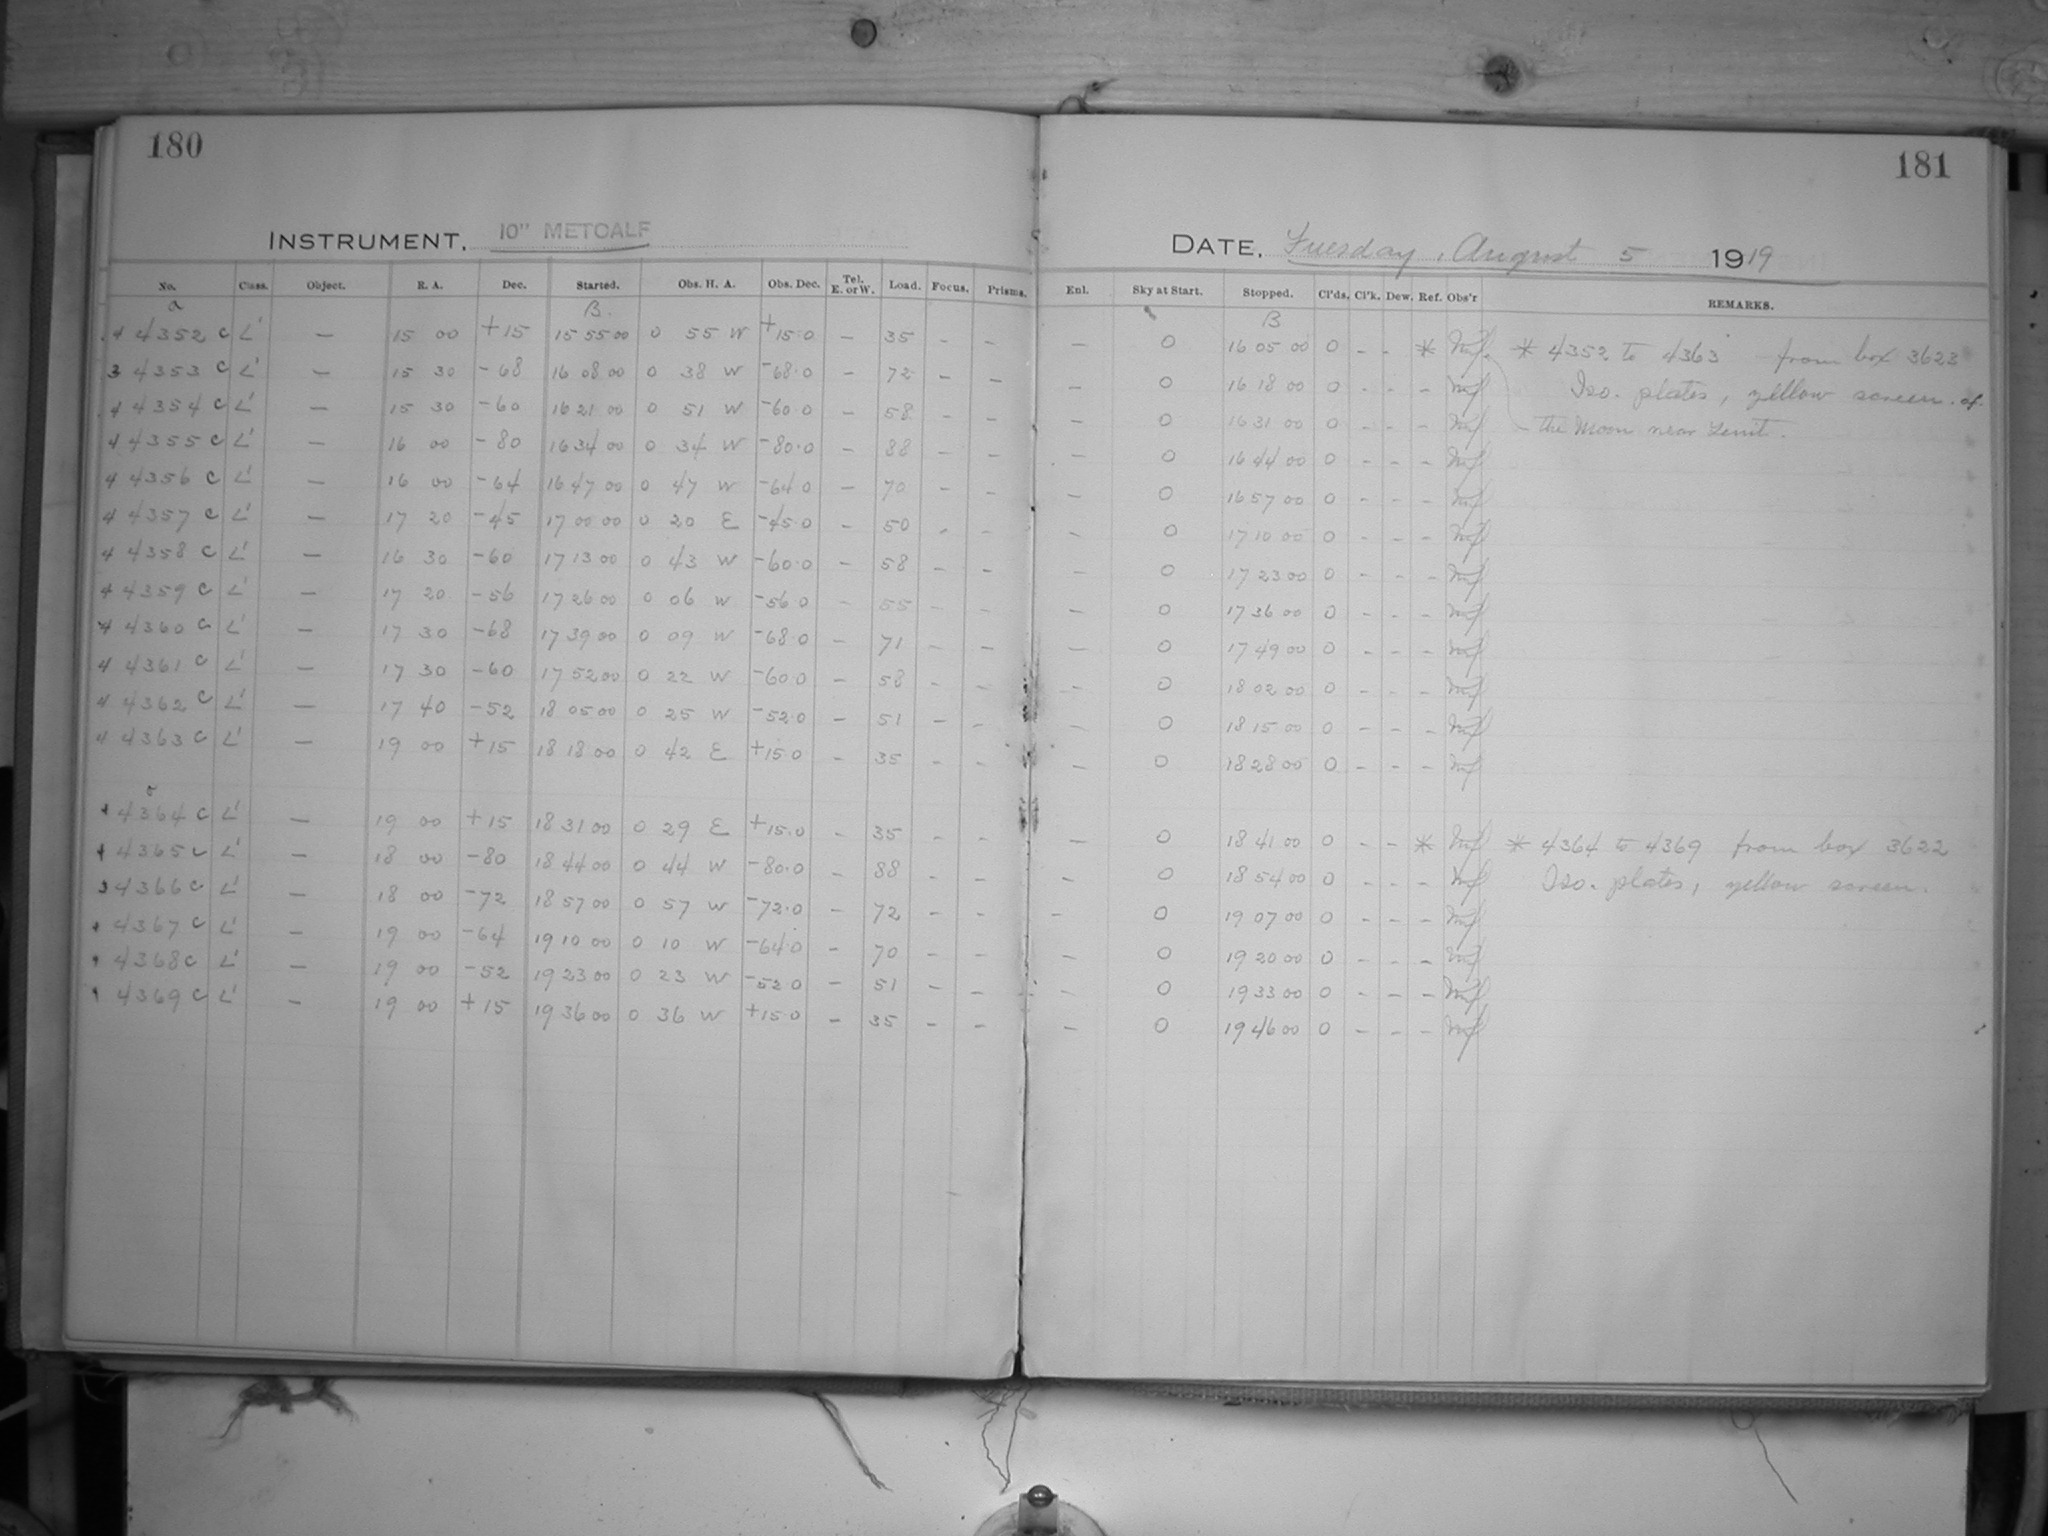 180
INSTRUMENT. 10" METCALF
No. Class. Object. R. A. Dec. Started. Obs. H. A. Obs. Dec. Tel. E. or W. Load. Focus. Prisms.
a B.
4 4352 C L' — 15 00 +15 15 55 00 0 55 W +15.0 — 35 - -
3 4353 C L' — 15 30 -68 16 08 00 0 38 W -68.0 — 72 - -
4 4354 C L' — 15 30 -60 16 21 00 0 51 W -60.0 — 58 - -
4 4355 C L' — 16 00 -80 16 34 00 0 34 W -80.0 — 88 - -
4 4356 C L' — 16 00 -64 16 47 00 0 47 W -64.0 — 70 - -
4 4357 C L' — 17 20 -45 17 00 00 0 20 E -45.0 — 50 - -
4 4358 C L' — 16 30 -60 17 13 00 0 43 W -60.0 — 58 - -
4 4359 C L' — 17 20 -56 17 26 00 0 06 W -56.0 — 55 - -
4 4360 C L' — 17 30 -68 17 39 00 0 09 W -68.0 — 71 - -
4 4361 C L' — 17 30 -60 17 52 00 0 22 W -60.0 — 58 - -
4 4362 C L' — 17 40 -52 18 05 00 0 25 W -52.0 — 51 - -
4 4363 C L' — 19 00 +15 18 18 00 0 42 E +15.0 — 35 - -
4364 C L' — 19 00 +15 18 31 00 0 29 E +15.0 — 35 - -
4365 C L' — 18 00 -80 18 44 00 0 44 W -80.0 — 88 - -
3 4366 C L' — 18 00 -72 18 57 00 0 57 W -72.0 — 72 - -
4367 C L' — 19 00 -64 19 10 00 0 10 W -64.0 — 70 - -
4368 C L' — 19 00 -52 19 23 00 0 23 W -52.0 — 51 - -
4369 C L' — 19 00 +15 19 36 00 0 36 W +15.0 — 35 - -
181
DATE. Tuesday, August 5 1919
Enl. Sky at Start. Stopped. Cl'ds. Cl'k. Dew. Ref. Obs'r REMARKS.
B
— 0 16 05 00 0 - - * * 4352 to 4363 from box 3623
— 0 16 18 00 0 - - - Iso. plates, yellow screen.
— 0 16 31 00 0 - - - the Moon near Zenit.
— 0 16 44 00 0 - - -
— 0 16 57 00 0 - - -
— 0 17 10 00 0 - - -
— 0 17 23 00 0 - - -
— 0 17 36 00 0 - - -
— 0 17 49 00 0 - - -
— 0 18 02 00 0 - - -
— 0 18 15 00 0 - - -
— 0 18 28 00 0 - - -
— 0 18 41 00 0 - - * * 4364 to 4369 from box 3622
— 0 18 54 00 0 - - - Iso. plates, yellow screen.
— 0 19 07 00 0 - - -
— 0 19 20 00 0 - - -
— 0 19 33 00 0 - - -
— 0 19 46 00 0 - - -